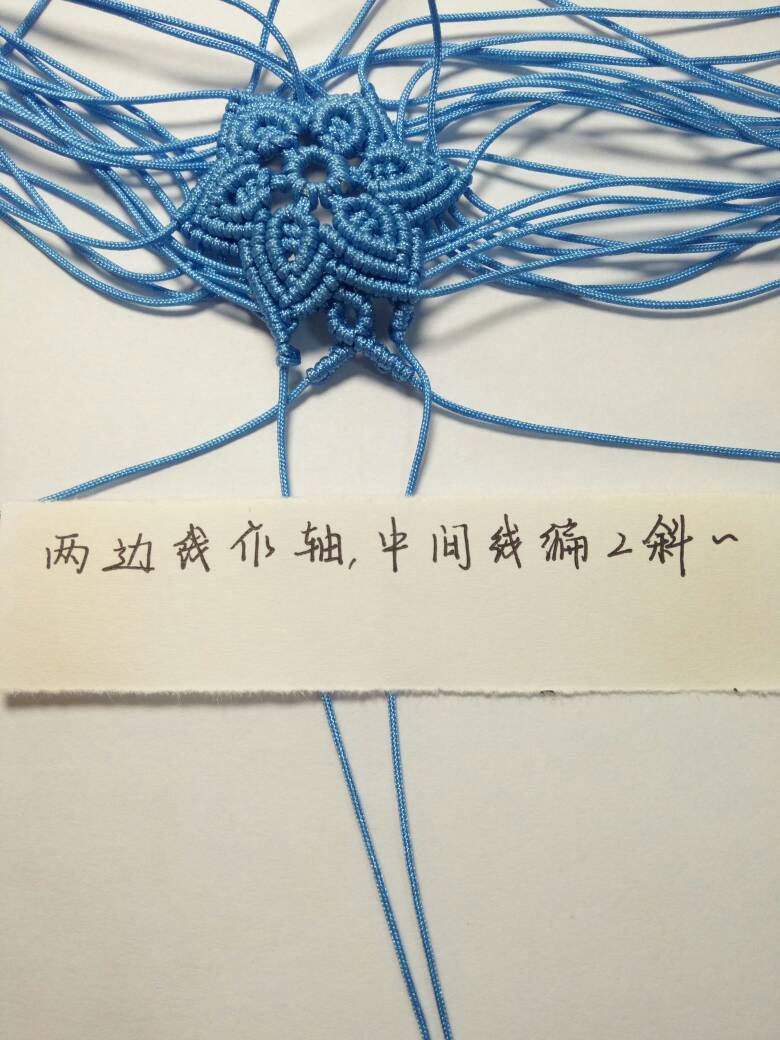 两边线作轴,中间线编2斜~